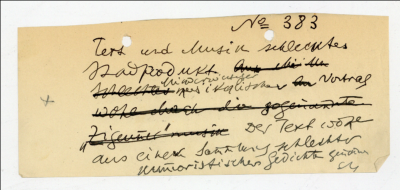 No 383
Text und Musik schlechtes
Stadtprodukt.
minderwertiger
musikalischer Vortrag
wäre durch die sogenannte
"Zigeunermusik Der Text wäre
aus einer Sammlung schlechter
humoristischer Gedichte